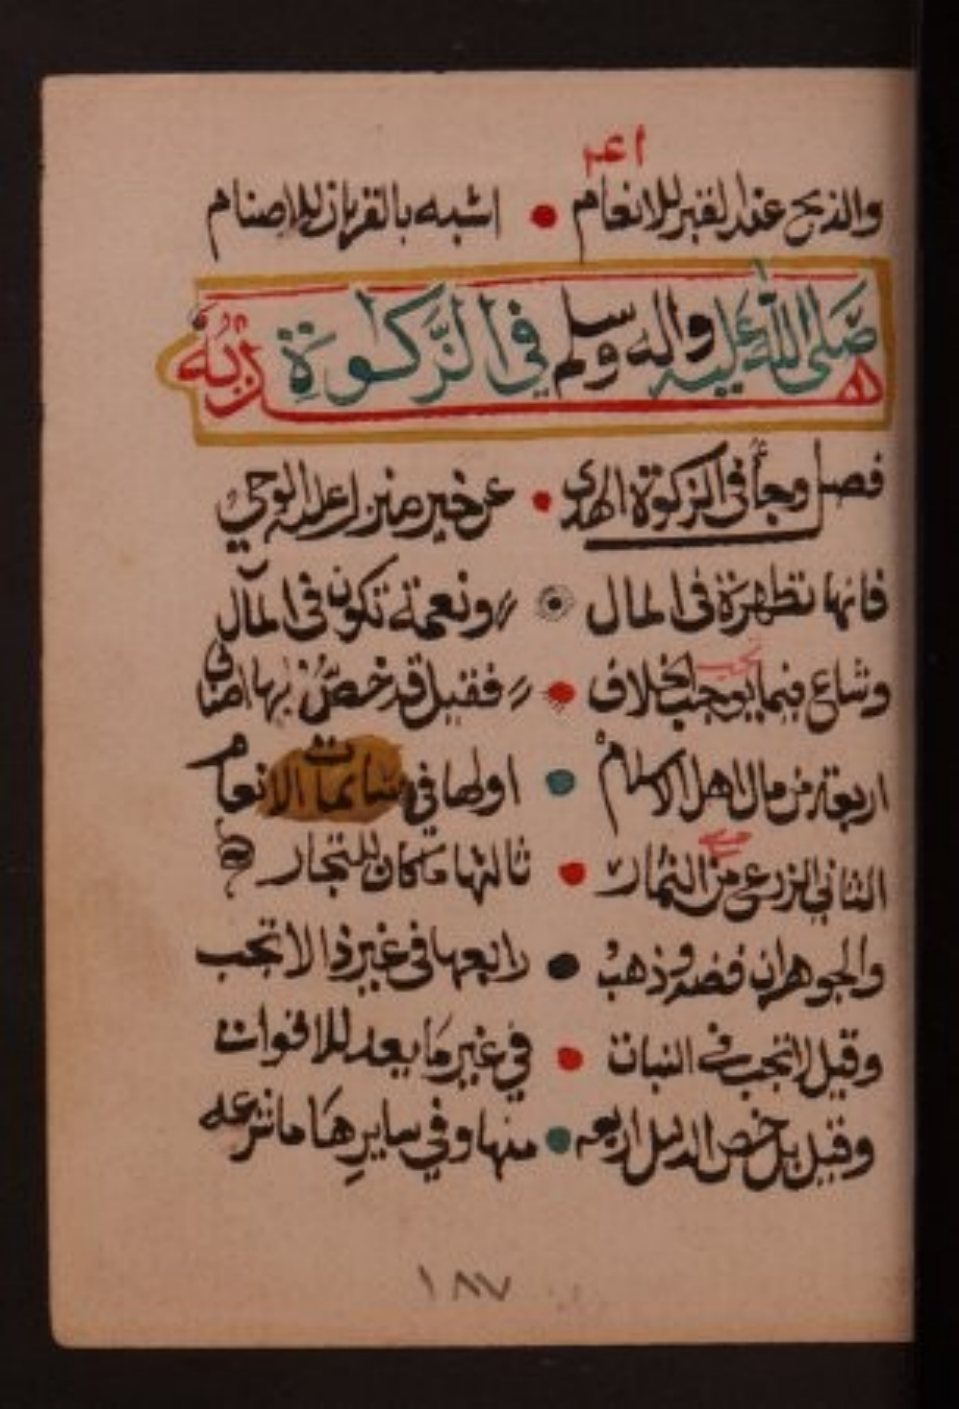 اعم
والذبح عند القبر للانعام • اشبه بالقربان للاصنام
هديه صلى الله عليه واله وسلم في الزكوة
فصل وجا في الزكوة الهدى • عن خير من انزل اليه الوحي
فانها تطهرة في المال • ونعمة تكون في المال
وشاع فيما يوجب الخلاف • فقيل قد خص بها اصناف
اربعة من مال اهل الاسلام • اولها في سائمات الانعام
الثاني الزرع من الثمار • ثالثها ما كان للتجار
والجوهران فضه وذهب • رابعها في غير ذا لا تجب
وقيل لا تجب في النبات • في غير ما يعد للاقوات
وقيل بل خص الدليل اربعه • منها وفي سايرها ما شرعه
١٨٧